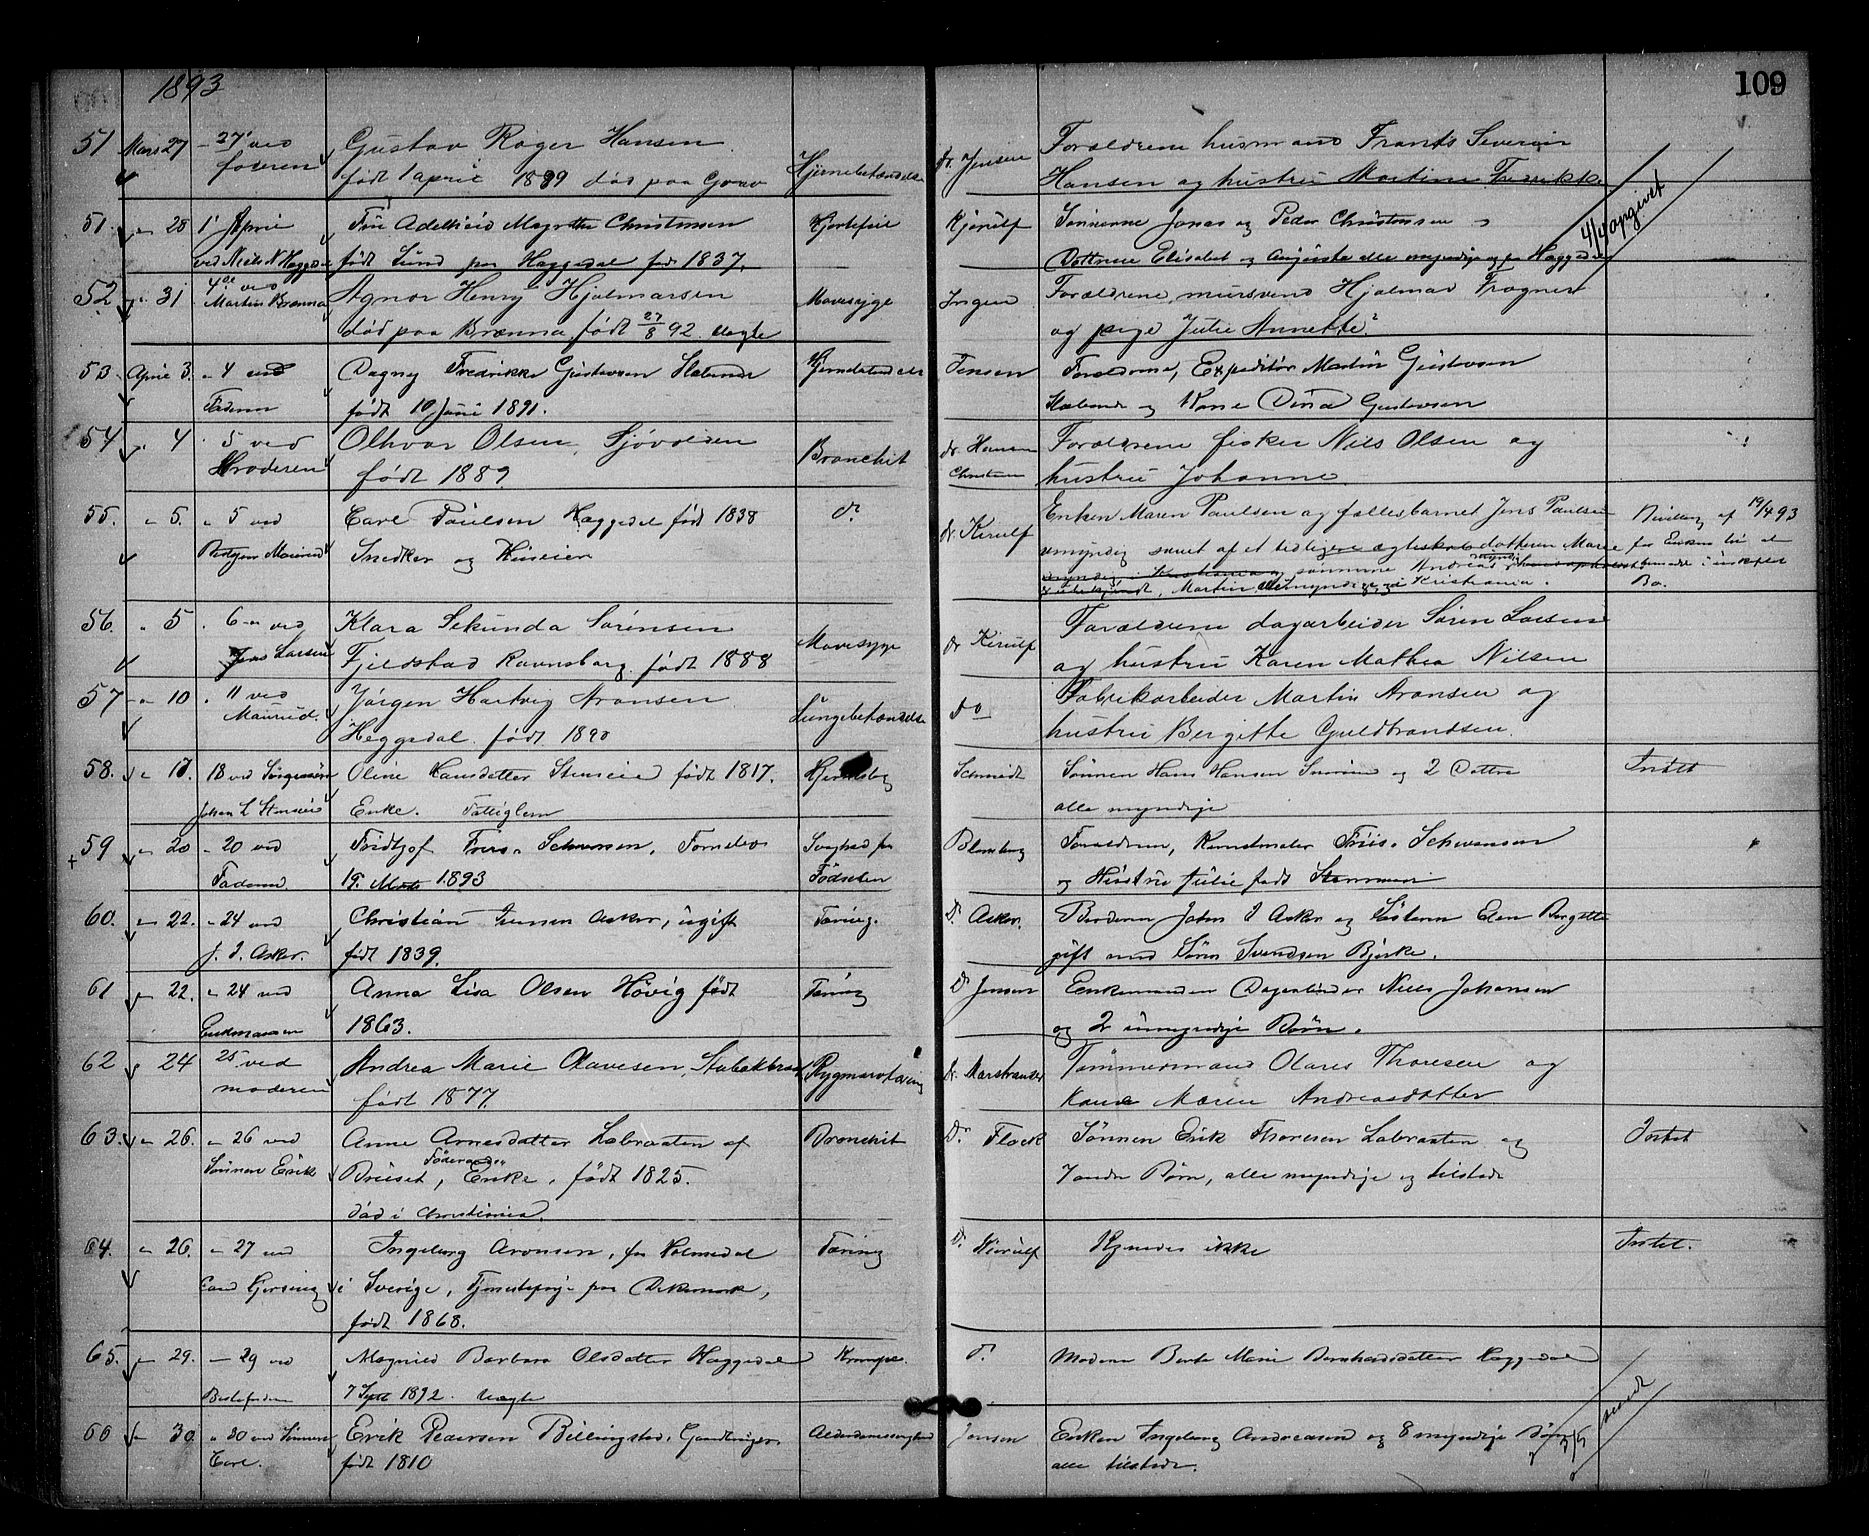 1893
109
51 Mars 27 - 27' ved Gustav Roger Hansen Hjernebetændelse dr. Jensen Forældrene husmand Frants Severin
faderen født 1 april 1889 død paa Hansen og hustru Martine Fredrikke
51. " 28 1' April Fru Adelheid Christensen Hjertefeil Kjerulf Sønnerne Jonas og Peder Christensen
4/4 opgivet
ved Niels N Heggedal født Lund paa Heggedal født 1837. Døttrene Elisabet og Auguste alle myndige og paa Heggedal
52 " 31 4de ved Agnor Henry Hjalmarsen Mavesyge Ingen Forældrene, mursvend Hjalmar Frogner
Martin Brænna død paa Brænna født 27/8 92. Uægte og pige Julie Annette
53. April 3. " 4 ved Dagny Fredrikke Gustavsen Slabende Hjernebetændelse Jensen Forældrene, Expeditør Martin Gustavsen
Faderen født 10 Juni 1891. Slabende og Kone Dina Gustavsen
54 " 4 " 5 ved Olhvar Olsen Sjøvolden Bronchit dr. Hansen Forældrene fisker Nils Olsen og
født 1889 Christensen hustru Johanne
55. " 5. " 5 ved Carl Paulsen Heggedal født 1838 do. dr. Kirulf Enken Maren Paulsen og fællesbarnet Jens Paulsen af 19/4 93
Snedker og Huseier umyndig samt af et tidligere ægteskab datteren Marie for Enken til at
myndig i Kristiania og sønnerne Andreas uskiftet
Martin myndig Kristiania. Bo.
56. " 5 " 6 " ved Klara Sekunda Sørensen Mavesyge dr Kirulf Forældrene dagarbeider Søren Larsen
Jens Larsen Fjeldstad Ravnsborg. født 1888 og hustru Karen Mathea Nilsen
57 " 10 " 11 ved Jørgen Hartvig Aronsen Lungebetændelse do Fabrikarbeider Martin Aronsen og
Maurud. Heggedal. født 1890 hustru Bergitte Guldbrandsen.
58. " 17. 18 ved Oline Hansdatter Stenseie født 1817. Schmidt Sønnen Hans Hansen og 2 Døttre Intet
Johan L Stenseie Enke. Fattiglem alle myndige
59 " 20 " 20 ved Fridtjof Friis-Schwensen, Svaghed fra Blomberg Forældrene, Kunstmaler Friis-Schwensen
Faderen 19. Marts 1893 Fødselen og Hustru Julie født
60. " 22. " 24 ved Christian Jensen Asker, ugift Tæring. Dr. Asker. Broderen John J Asker og Søsteren Elen Bergitte
J. J. Asker. født 1839. gift med Søren Svendsen Bjerke.
61 " 22. " 24 ved Anna Lisa Olsen Høvig født Tæring Dr Jensen Enkemanden Dagarbeider Niels Johansen
Enkemanden 1863. og 2 umyndige Børn.
62 " 24 25 ved Andrea Marie Olavesen, Rygmarvstæring dr. Marstrander Tømmermand Olaves Thoresen og
moderen født 1877. kone Maren Andreasdatter
63. " 26. " 26 ved Anne Arnesdatter Labraaten af Bronchit Dr. Flock Sønnen Erik Thoresen Labraaten og Intet
Sønnen Erik Bruset, Føderaads Enke, født 1825. 7 andre Børn, alle myndige og tilstede
død i Christiania.
64. " 26. " 27 ved Ingeborg Aronsen, fra Holmedal Tæring Dr. Kierulf Kjendes ikke Intet.
i Sverige, Tjenestepige paa
født 1868.
65. " 29. " 29 ved Magnild Barbara Olsdatter Heggedal Krampe. do. Moderen Berte Marie Bernhardsdatter Heggedal
Bestefaderen 7 Septe 1892. Uægte
66 " 30. " 30 ved Sønnen Erik Pedersen Billingstad, Gaardbruger Alderdomssvaghed Jensen Enken Ingeborg Andreasen og 8 myndige Børn
Carl. født 1810 alle tilstede.
3/5